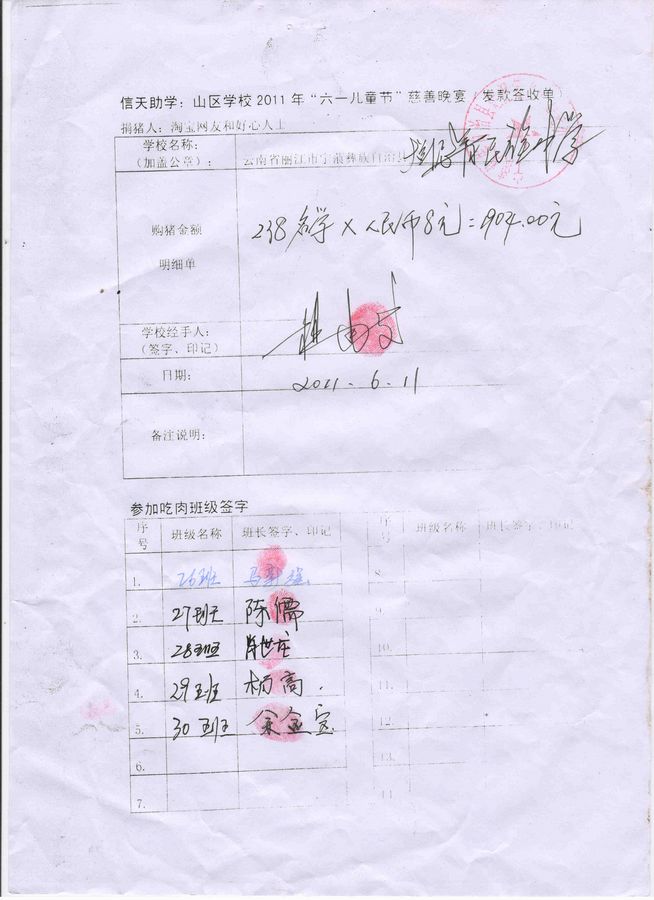 信天助学：山区学校 2011 年“六一儿童节”慈善晚宴（发款签收单）
捐猪人：淘宝网友和好心人士
学校名称：
（加盖公章）：
云南省丽江市宁蒗彝族自治县
民族中学
购猪金额
明细单
238名学 × 人民币8元=1904.00元
学校经手人：
（签字、印记）
日期：
2011.6.11
备注说明：
参加吃肉班级签字
序号 班级名称 班长签字、印记 序号 班级名称 班长签字、印记
1. 26班 8.
2. 27班 陈儒 9.
3. 28班 10.
4. 29班 杨高. 11.
5. 30班 余金宝 12.
6. 13.
7. 14